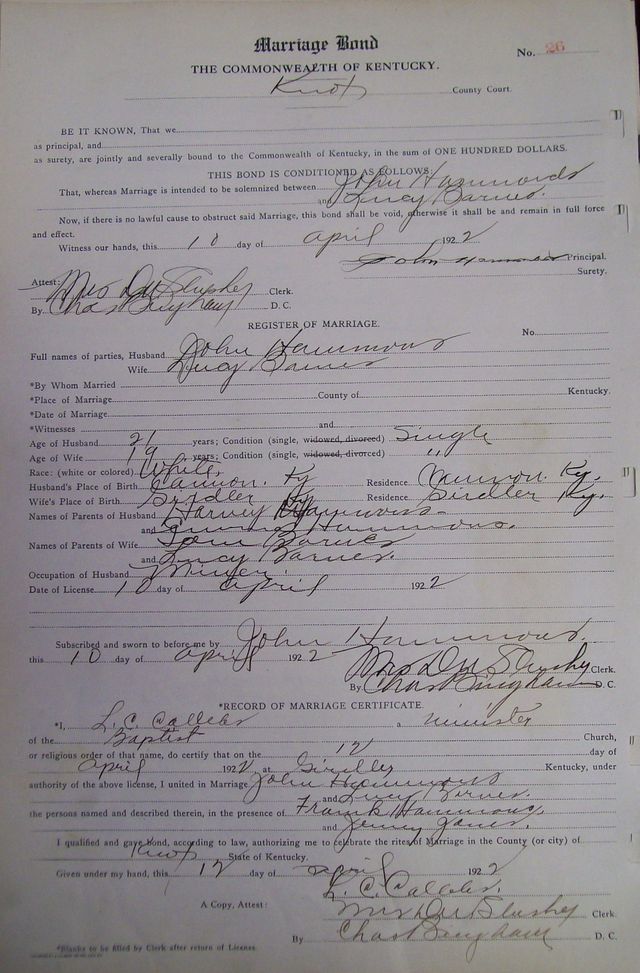 Marriage Bond
No. 26
THE COMMONWEALTH OF KENTUCKY.
Knox County Court.
BE IT KNOWN, That we
as principal, and
as surety, are jointly and severally bound to the Commonwealth of Kentucky, in the sum of ONE HUNDRED DOLLARS.
THIS BOND IS CONDITIONED AS FOLLOWS:
That, whereas Marriage is intended to be solemnized between John Hammonds
and Lucy Barnes.
Now, if there is no lawful cause to obstruct said Marriage, this bond shall be void, otherwise it shall be and remain in full force
and effect.
Witness our hands, this 10 day of April 1922
John Hammons Principal.
Surety.
Attest:
Mrs D W Slusher Clerk.
By Chas Bingham D. C.
REGISTER OF MARRIAGE.
No.
Full names of parties, Husband John Hammons
Wife Lucy Barnes
*By Whom Married
*Place of Marriage County of Kentucky.
*Date of Marriage
*Witnesses and
Age of Husband 21 years; Condition (single, widowed, divorced) Single
Age of Wife 19 years; Condition (single, widowed, divorced) "
Race: (white or colored) White
Husband's Place of Birth Cannon. Ky Residence Cannon. Ky.
Wife's Place of Birth Girdler Ky Residence Girdler Ky.
Names of Parents of Husband Harvey Hammons
and Hammons.
Names of Parents of Wife Barnes
and Lucy Barnes.
Occupation of Husband Miner.
Date of License 10 day of April 1922
Subscribed and sworn to before me by John Hammons.
this 10 day of April 1922 Mrs D W Slusher Clerk.
By Chas Bingham D. C.
*RECORD OF MARRIAGE CERTIFICATE.
*I, L. C. Callebs a minister
of the Baptist Church,
or religious order of that name, do certify that on the 12 day of
April 1922 at Girdler Kentucky, under
authority of the above license, I united in Marriage John Hammons
and Lucy Barnes.
the persons named and described therein, in the presence of Frank Hammons,
and Jenny Jones.
I qualified and gave bond, according to law, authorizing me to celebrate the rites of Marriage in the County (or city) of
Knox State of Kentucky.
Given under my hand, this 12 day of April 1922
L. C. Callebs.
A Copy, Attest: Mrs D W Slusher Clerk.
By Chas Bingham D. C.
*Blanks to be filled by Clerk after return of License.